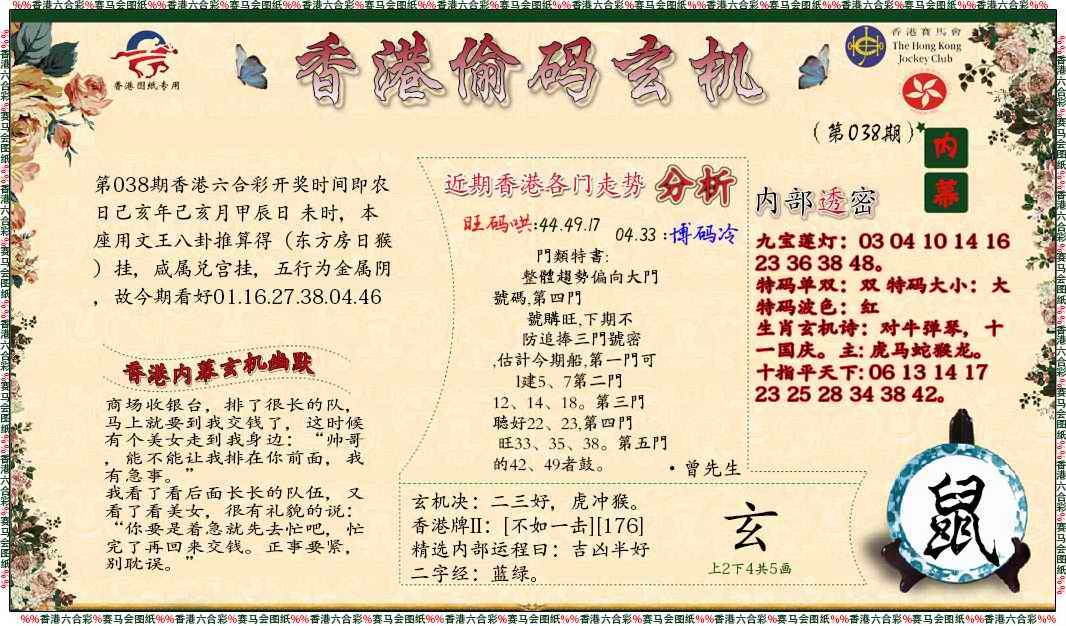 %%香港六合彩%赛马会图纸%%香港六合彩%赛马会图纸%%香港六合彩%赛马会图纸%%香港六合彩%赛马会图纸%%香港六合彩%赛马会图纸%%香港六合彩%赛马会图纸%%香港六合彩%%
香港图纸专用
香港偷码玄机
香港賽馬會
The Hong Kong
Jockey Club
(第038期)
内幕
第038期香港六合彩开奖时间即农
日己亥年己亥月甲辰日 未时，本
座用文王八卦推算得（东方房日猴
）挂，咸属兑宫挂，五行为金属阴
，故今期看好01.16.27.38.04.46
香港内幕玄机幽默
商场收银台，排了很长的队，
马上就要到我交钱了，这时候
有个美女走到我身边：“帅哥
，能不能让我排在你前面，我
有急事。”
我看了看后面长长的队伍，又
看了看美女，很有礼貌的说：
“你要是着急就先去忙吧，忙
完了再回来交钱。正事要紧，
别耽误。”
近期香港各门走势 分析
旺码哄:44.49.17
04.33 :博码冷
門類特書:
整體趨勢偏向大門
號碼,第四門
號購旺,下期不
防追捧三門號密
,估計今期船,第一門可
1建5、7第二門
12、14、18。第三門
聽好22、23,第四門
旺33、35、38。第五門
的42、49者鼓。
·曾先生
内部透密
九宝莲灯：03 04 10 14 16
23 36 38 48。
特码单双：双 特码大小：大
特码波色：红
生肖玄机诗：对牛弹琴，十
一国庆。主: 虎马蛇猴龙。
十指平天下: 06 13 14 17
23 25 28 34 38 42。
玄机决：二三好，虎冲猴。
香港牌II：[不如一击][176]
精选内部运程曰：吉凶半好
二字经：蓝绿。
玄
上2下4共5画
鼠
%%香港六合彩%赛马会图纸%%香港六合彩%赛马会图纸%%香港六合彩%赛马会图纸%%香港六合彩%赛马会图纸%%香港六合彩%赛马会图纸%%香港六合彩%赛马会图纸%%香港六合彩%%